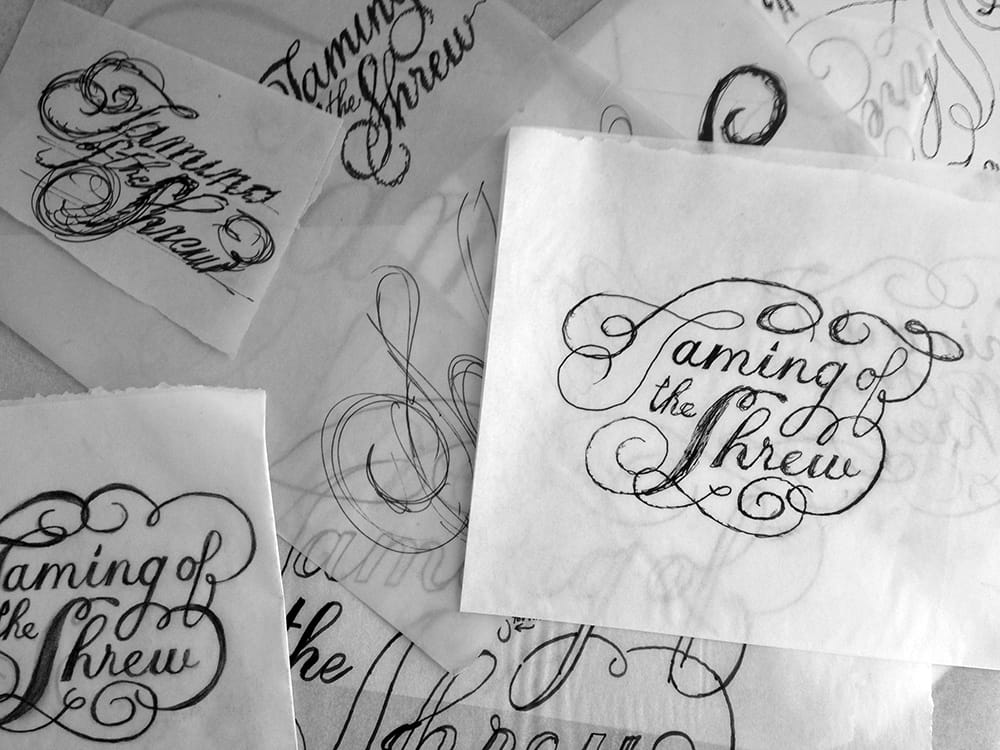 Taming
the Shrew
Taming
of the
Shrew
Taming of
the Shrew
Taming of
the Shrew
the